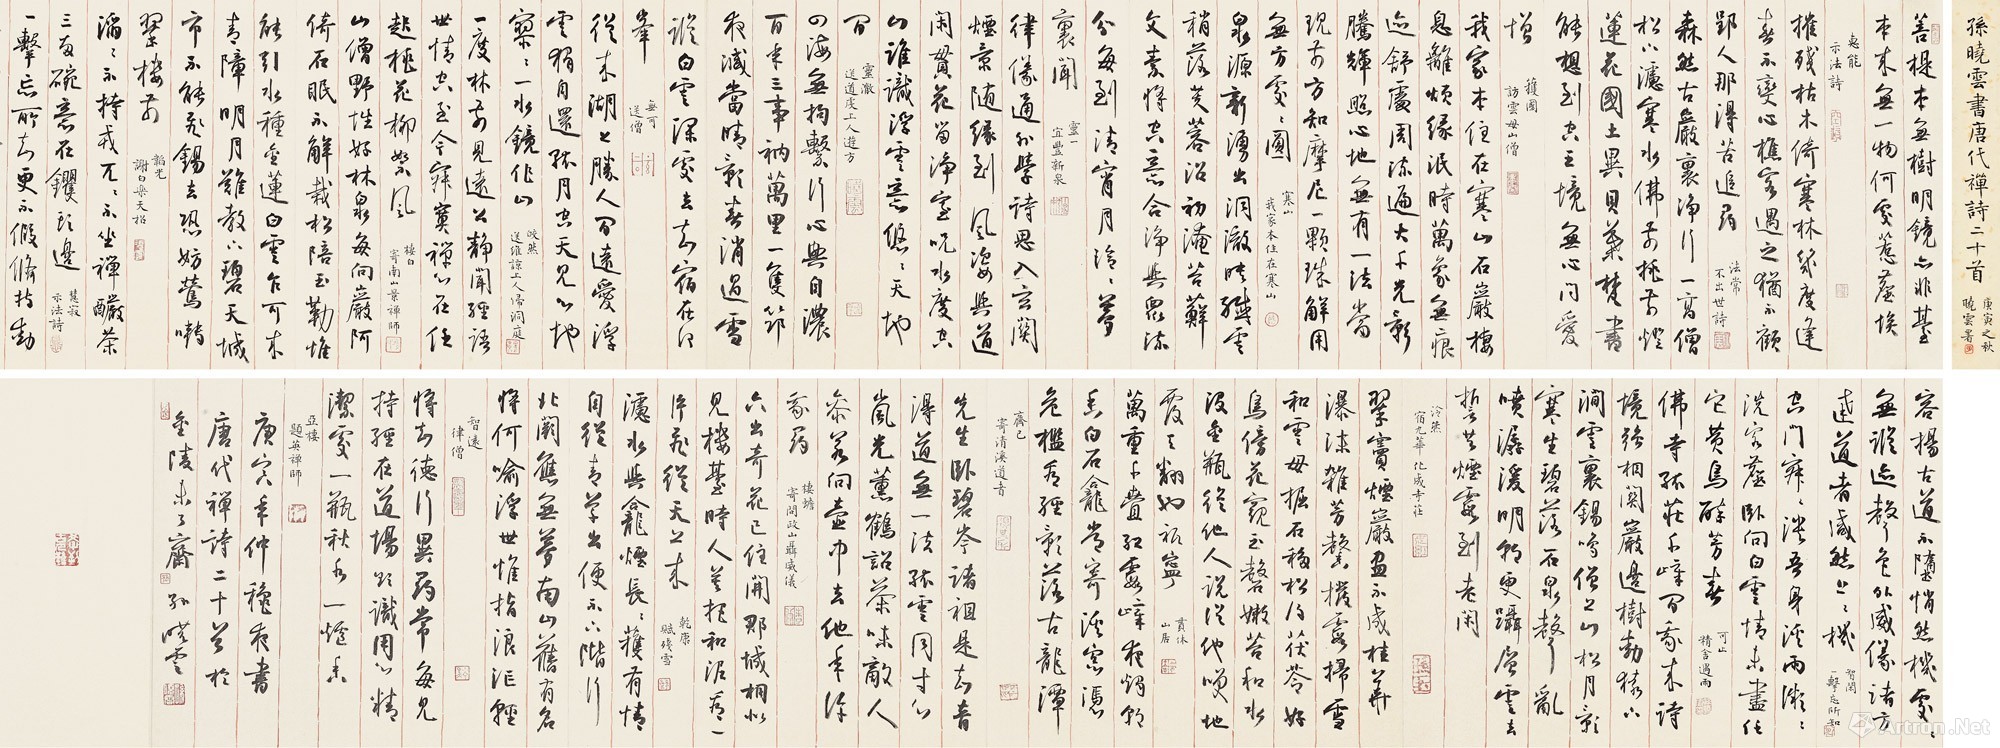 孫曉雲書唐代禪詩二十首
庚寅之秋
曉雲署
菩提本無樹明鏡亦非臺
本來無一物何處惹塵埃
惠能
示法詩
摧殘枯木倚寒林幾度逢
春不變心樵客遇之猶不顧
郢人那得苦追尋
法常
不出世詩
森然古巖裏淨行一高僧
松下濾寒水佛前挑夜燈
蓮花國土異貝葉梵書
能想到空王境無心問愛
憎
護國
訪雲母山僧
我家本住在寒山石巖棲
息離煩緣泯時萬象無痕
跡舒處周流遍大千光影
騰輝照心地無有一法當
現前方知摩尼一顆珠解用
無方處處圓
寒山
我家本住在寒山
泉源新湧出洞澈映纖雲
稍落芙蓉沼初淹苔蘚
文素將空意合淨與眾流
分每到清宵月泠泠夢
裏聞
靈一
宜豐新泉
律儀通外學詩思入玄關
煙景隨緣到風姿與道
閑貫花留淨室咒水度空
山誰識浮雲意悠悠天地
間
靈澈
送道虔上人遊方
四海無拘繫行心興自濃
百年三事衲萬里一隻筇
夜減當晴影春消過雪
蹤白雲深處去知宿在何
峯
無可
送僧
從來湖上勝人間遠愛浮
雲獨自還孤月空天見心地
寥寥一水鏡中山
皎然
送維諒上人歸洞庭
一度林前見遠公靜聞經語
世情空至今寂寞禪心在任
起桃花柳絮風
棲白
寄南山景禪師
山僧野性好林泉每向巖阿
倚石眠不解栽松陪玉勒惟
能引水種金蓮白雲乍可來
青嶂明月難教下碧天城
市不能飛錫去恐妨鶯囀
翠樓前
韜光
謝白樂天招
滔滔不持戒兀兀不坐禪釅茶
三兩碗意在钁頭邊
慧寂
示法詩
一擊忘所知更不假修持動
容揚古道不墮悄然機處處
無蹤跡聲色外威儀諸方
達道者咸然上上機
智閑
一擊忘所知
空門寂寂淡吾身溪雨微微
洗客塵臥向白雲情未盡任
它黃鳥醉芳春
可止
精舍遇雨
佛寺孤莊千嶂間我來詩
境強相關巖邊樹動猿下
澗雲裏錫鳴僧上山松月影
寒生碧落石泉聲亂
噴潺湲明朝更躡層雲去
誓共煙霞到老閑
泠然
宿九華化成寺莊
翠竇煙巖畫不成桂華
瀑沫雜芳馨撥霞掃雪
和雲母掘石移松得茯苓好
鳥傍花窺玉磬嫩苔和水
沒金瓶從他人說從他笑地
覆天翻也祇寧
貫休
山居
萬重千疊紅霞嶂夜燭朝
香白石龕常寄溪窗憑
危檻看經影落古龍潭
齊己
寄清溪道者
先生臥碧岑諸祖是知音
得道無一法孤雲同寸心
嵐光薰鶴詔茶味敵人
參若向壺中去他年許
我尋
棲蟾
寄問政山聶威儀
六出奇花已住開郡城相次
見樓臺時人莫把和泥看一
片飛從天上來
乾康
賦殘雪
濾水與龕煙長長護有情
自從青草出便不下階行
北闕應無夢南山舊有名
將何喻浮世惟指浪漚輕
智遠
律僧
將知德行異尋常每見
持經在道場欲識用心精
潔處一瓶秋水一爐香
亞棲
題英禪師
庚寅年仲穐夜書
唐代禪詩二十首於
金陵未了齋 孫曉雲
Artron.Net